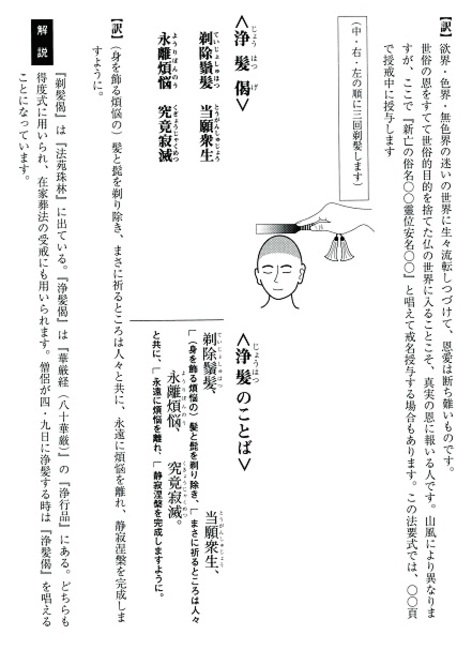 【訳】欲界・色界・無色界の迷いの世界に生々流転しつづけて、恩愛は断ち難いものです。
世俗の恩をすてて世俗的目的を捨てた仏の世界に入ることこそ、真実の恩に報いる人です。山風により異なりま
すが、ここで『新亡の俗名〇〇霊位安名〇〇』と唱えて戒名授予する場合もあります。この法要式では、〇〇頁
で授戒中に授与します
（中・右・左の順に三回剃髪します）
＜浄髪偈＞
じょうはつげ
剃除鬚髪　当願衆生
ていじょしゅはつ　とうがんしゅじょう
永離煩悩　究竟寂滅
ようりぼんのう　くぎょうじゃくめつ
＜浄髪のことば＞
じょうはつ
剃除鬚髪、　当願衆生、
ていじょしゅはつ　とうがんしゅじょう
「（身を飾る煩悩の）髪と髭を剃り除き、「まさに祈るところは人々
永離煩悩、　究竟寂滅。
ようりぼんのう　くきょうじゃくめつ
と共に、「永遠に煩悩を離れ、「静寂涅槃を完成しますように。
【訳】（身を飾る煩悩の）髪と髭を剃り除き、まさに祈るところは人々と共に、永遠に煩悩を離れ、静寂涅槃を完成しま
すように。
解説
『剃髪偈』は『法苑珠林』に出ている。『浄髪偈』は『華厳経（八十華厳）』の『浄行品』にある。どちらも
得度式に用いられ、在家葬法の受戒にも用いられます。僧侶が四・九日に浄髪する時は『浄髪偈』を唱える
ことになっています。